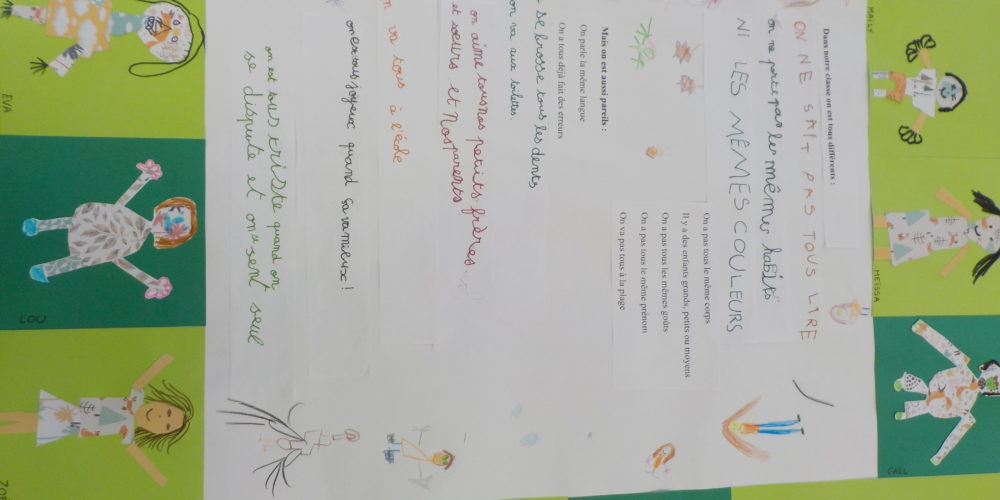 Dans notre classe on est tous différents :
ON NE SAIT PAS TOUS LIRE
on ne porte pas les mêmes habits
NI LES MÊMES COULEURS
On a pas tous le même corps
Il y a des enfants grands, petits ou moyens
On a pas tous les mêmes goûts
On a pas tous le même prénom
On va pas tous à la plage
Mais on est aussi pareils :
On parle la même langue
On a tous déjà fait des erreurs
se brosse tous les dents
on va aux toilettes.
on aime tous nos petits frères
et soeurs et Nos parents
va tous à l'école
on est tous joyeux quand sa va mieux !
on est tous triste quand on
se dispute et on sent seul
MAÏLY
MEISSA
GAËL
EVA
LOU
ZOÉ